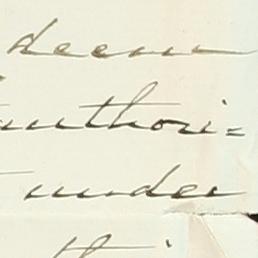 deem
authori=
under
thi